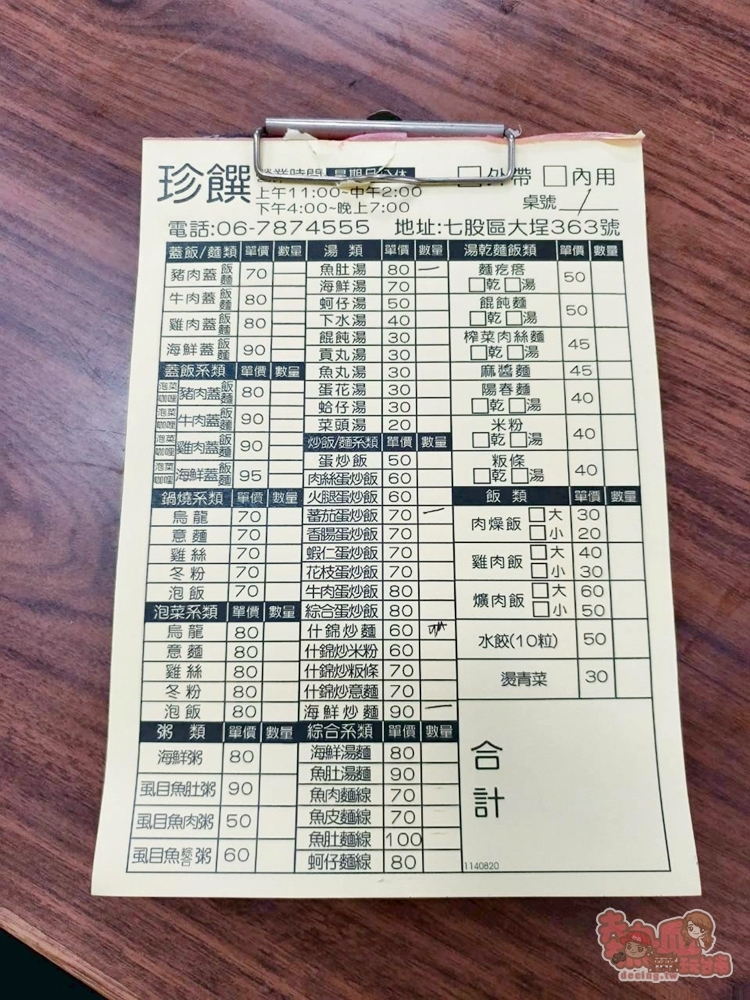 珍饌
營業時間 星期日公休
上午11:00~中午2:00
下午4:00~晚上7:00
□外帶 □內用
桌號
電話:06-7874555 地址:七股區大埕363號
蓋飯/麵類 單價 數量
豬肉蓋飯麵 70
牛肉蓋飯麵 80
雞肉蓋飯麵 80
海鮮蓋飯麵 90
蓋飯系類 單價 數量
泡菜咖哩豬肉蓋飯麵 80
泡菜咖哩牛肉蓋飯麵 90
泡菜咖哩雞肉蓋飯麵 90
泡菜咖哩海鮮蓋飯麵 95
鍋燒系類 單價 數量
烏龍 70
意麵 70
雞絲 70
冬粉 70
泡飯 70
泡菜系類 單價 數量
烏龍 80
意麵 80
雞絲 80
冬粉 80
泡飯 80
粥類 單價 數量
海鮮粥 80
虱目魚肚粥 90
虱目魚肉粥 50
虱目魚綜合粥 60
湯類 單價 數量
魚肚湯 80 一
海鮮湯 70
蚵仔湯 50
下水湯 40
餛飩湯 30
貢丸湯 30
魚丸湯 30
蛋花湯 30
蛤仔湯 30
菜頭湯 20
炒飯/麵系類 單價 數量
蛋炒飯 50
肉絲蛋炒飯 60
火腿蛋炒飯 60
蕃茄蛋炒飯 70 一
香腸蛋炒飯 70
蝦仁蛋炒飯 70
花枝蛋炒飯 70
牛肉蛋炒飯 80
綜合蛋炒飯 80
什錦炒麵 60
什錦炒米粉 60
什錦炒粄條 70
什錦炒意麵 70
海鮮炒麵 90 一
綜合系類 單價 數量
海鮮湯麵 80
魚肚湯麵 90
魚肉麵線 70
魚皮麵線 70
魚肚麵線 100
蚵仔麵線 80
湯乾麵飯類 單價 數量
麵疙瘩 50
□乾 □湯
餛飩麵 50
□乾 □湯
榨菜肉絲麵 45
□乾 □湯
麻醬麵 45
陽春麵 40
□乾 □湯
米粉 40
□乾 □湯
粄條 40
□乾 □湯
飯類 單價 數量
肉燥飯 □大 30
□小 20
雞肉飯 □大 40
□小 30
爌肉飯 □大 60
□小 50
水餃(10粒) 50
燙青菜 30
合計
1140820
deeing.tw